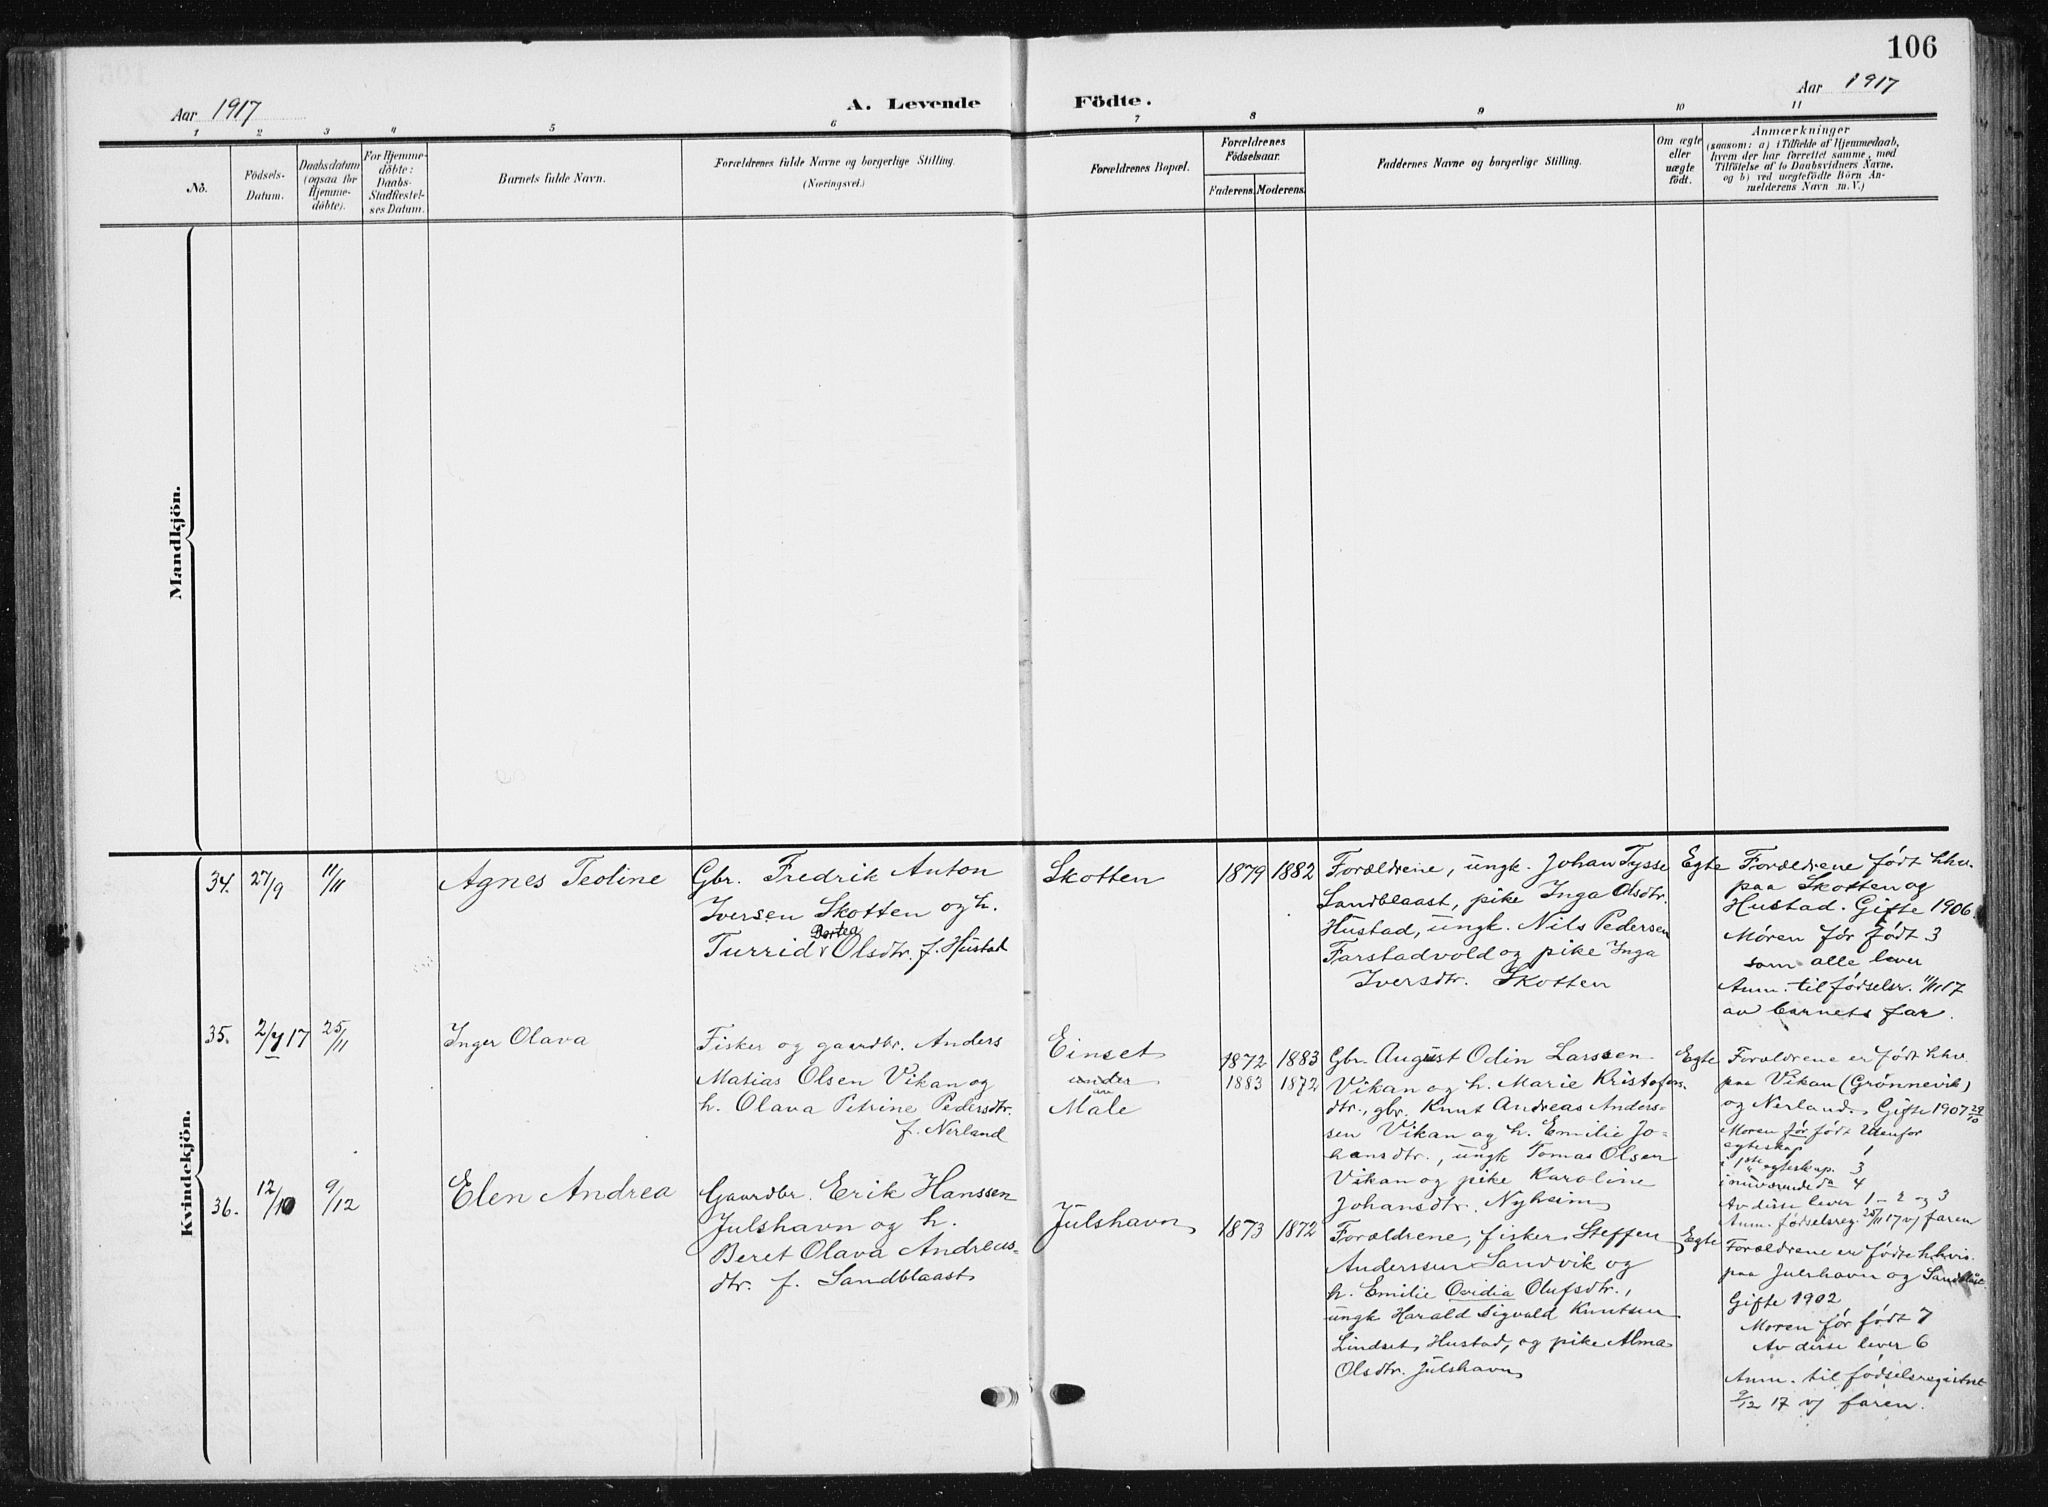 106
Aar 1917
A. Levende Födte.
Aar 1917
1 2 3 4 5 6 7 8 9 10 11
No.
Födsels-
Datum.
Daabsdatum
(ogsaa for
Hjemme-
döbte).
For Hjemme-
döbte:
Daabs-
Stadfæstel-
ses Datum.
Barnets fulde Navn.
Forældrenes fulde Navne og borgerlige Stilling.
(Næringsvei.)
Forældrenes Bopæl.
Forældrenes
Födselsaar.
Faderens.
Moderens.
Faddernes Navne og borgerlige Stilling.
Om ægte
eller
uægte
födt.
Anmærkninger
(saasom: a) i Tilfælde af Hjemmedaab,
hvem der har forrettet samme, med
Tilföielse af to Daabsvidners Navne,
og b) ved uægtefödte Börn An-
melderens Navn m. V.)
Mandkjön.
Kvindekjön.
34.
27/9
11/11
Agnes Teoline
Gbr. Fredrik Anton
Iversen Skotten og h.
Bortea
Turrid Olsdtr. f. Hustad
Skotten
1879
1882
Forældrene, ungk. Johan Tysse
Sandblaast, pike Inga Olsdtr.
Hustad, ungk. Nils Pedersen
Farstadvold og pike Inga
Iversdtr. Skotten
Egte
Forældrene født hhv.
paa Skotten og
Hustad. Gifte 1906.
Møren før født 3
som alle lever
Anm. til fødselsr. 11/11 17
av barnets far.
35.
2/ 17
25/11
Inger Olava
Fisker og gaardbr. Anders
Matias Olsen Vikan og
h. Olava Petrine Pedersdtr.
f. Nerland
Einset
under
Male
1872
1883
1883
1872
Gbr. August Odin Larssen
Vikan og h. Marie Kristofers-
dtr., gbr. Knut Andreas Anders-
sen Vikan og h. Emilie Jo-
hansdtr., ungk Tomas Olsen
Vikan og pike Karoline
Johansdtr. Nyheim
Egte
Forældrene er født hhv.
paa Vikan (Grønnevik)
og Nerland. Gifte 1907 29/10
Moren før født utenfor
egteskap 1
i 1ste egteskap. 3
i nuværende do 4
Av disse lever 1 - 2 og 3
Anm. fødselsreg. 25/11 17 v/ faren
36.
12/10
9/12
Elen Andrea
Gaardbr. Erik Hanssen
Julshavn og h.
Beret Olava Andreas-
dtr. f. Sandblaast
Julshavn
1873
1872
Forældrene, fisker Steffen
Anderssen Sandvik og
h. Emilie Ovidia Olufsdtr.,
ungk Harald Sigvald Knutsen
Lindset, Hustad, og pike Alma
Olsdtr. Julshavn
Egte
Forældrene er fødte hhvis.
paa Julshavn og Sandblåst
Gifte 1902
Moren før født 7
Av disse lever 6
Anm. til fødselsregistret
9/12 17 v/ faren.